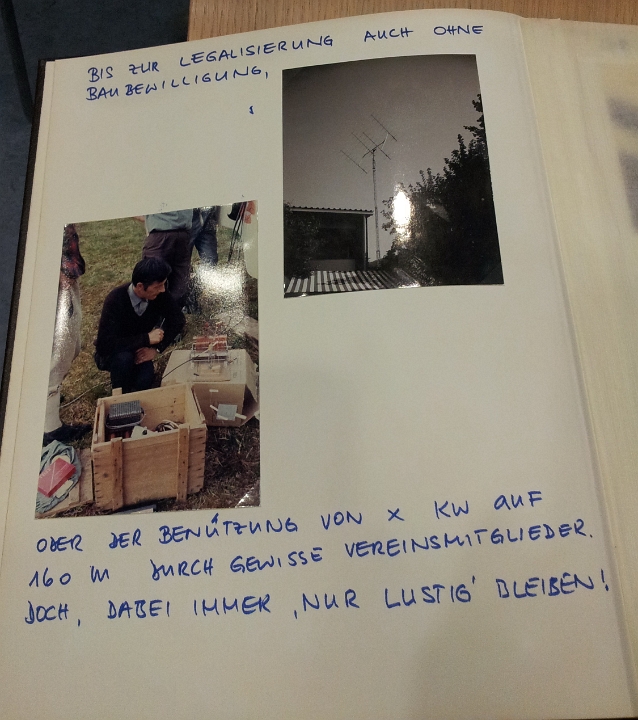 BIS ZUR LEGALISIERUNG AUCH OHNE
BAUBEWILLIGUNG,
ODER DER BENÜTZUNG VON X KW AUF
160 M DURCH GEWISSE VEREINSMITGLIEDER.
DOCH, DABEI IMMER ‚NUR LUSTIG' BLEIBEN!